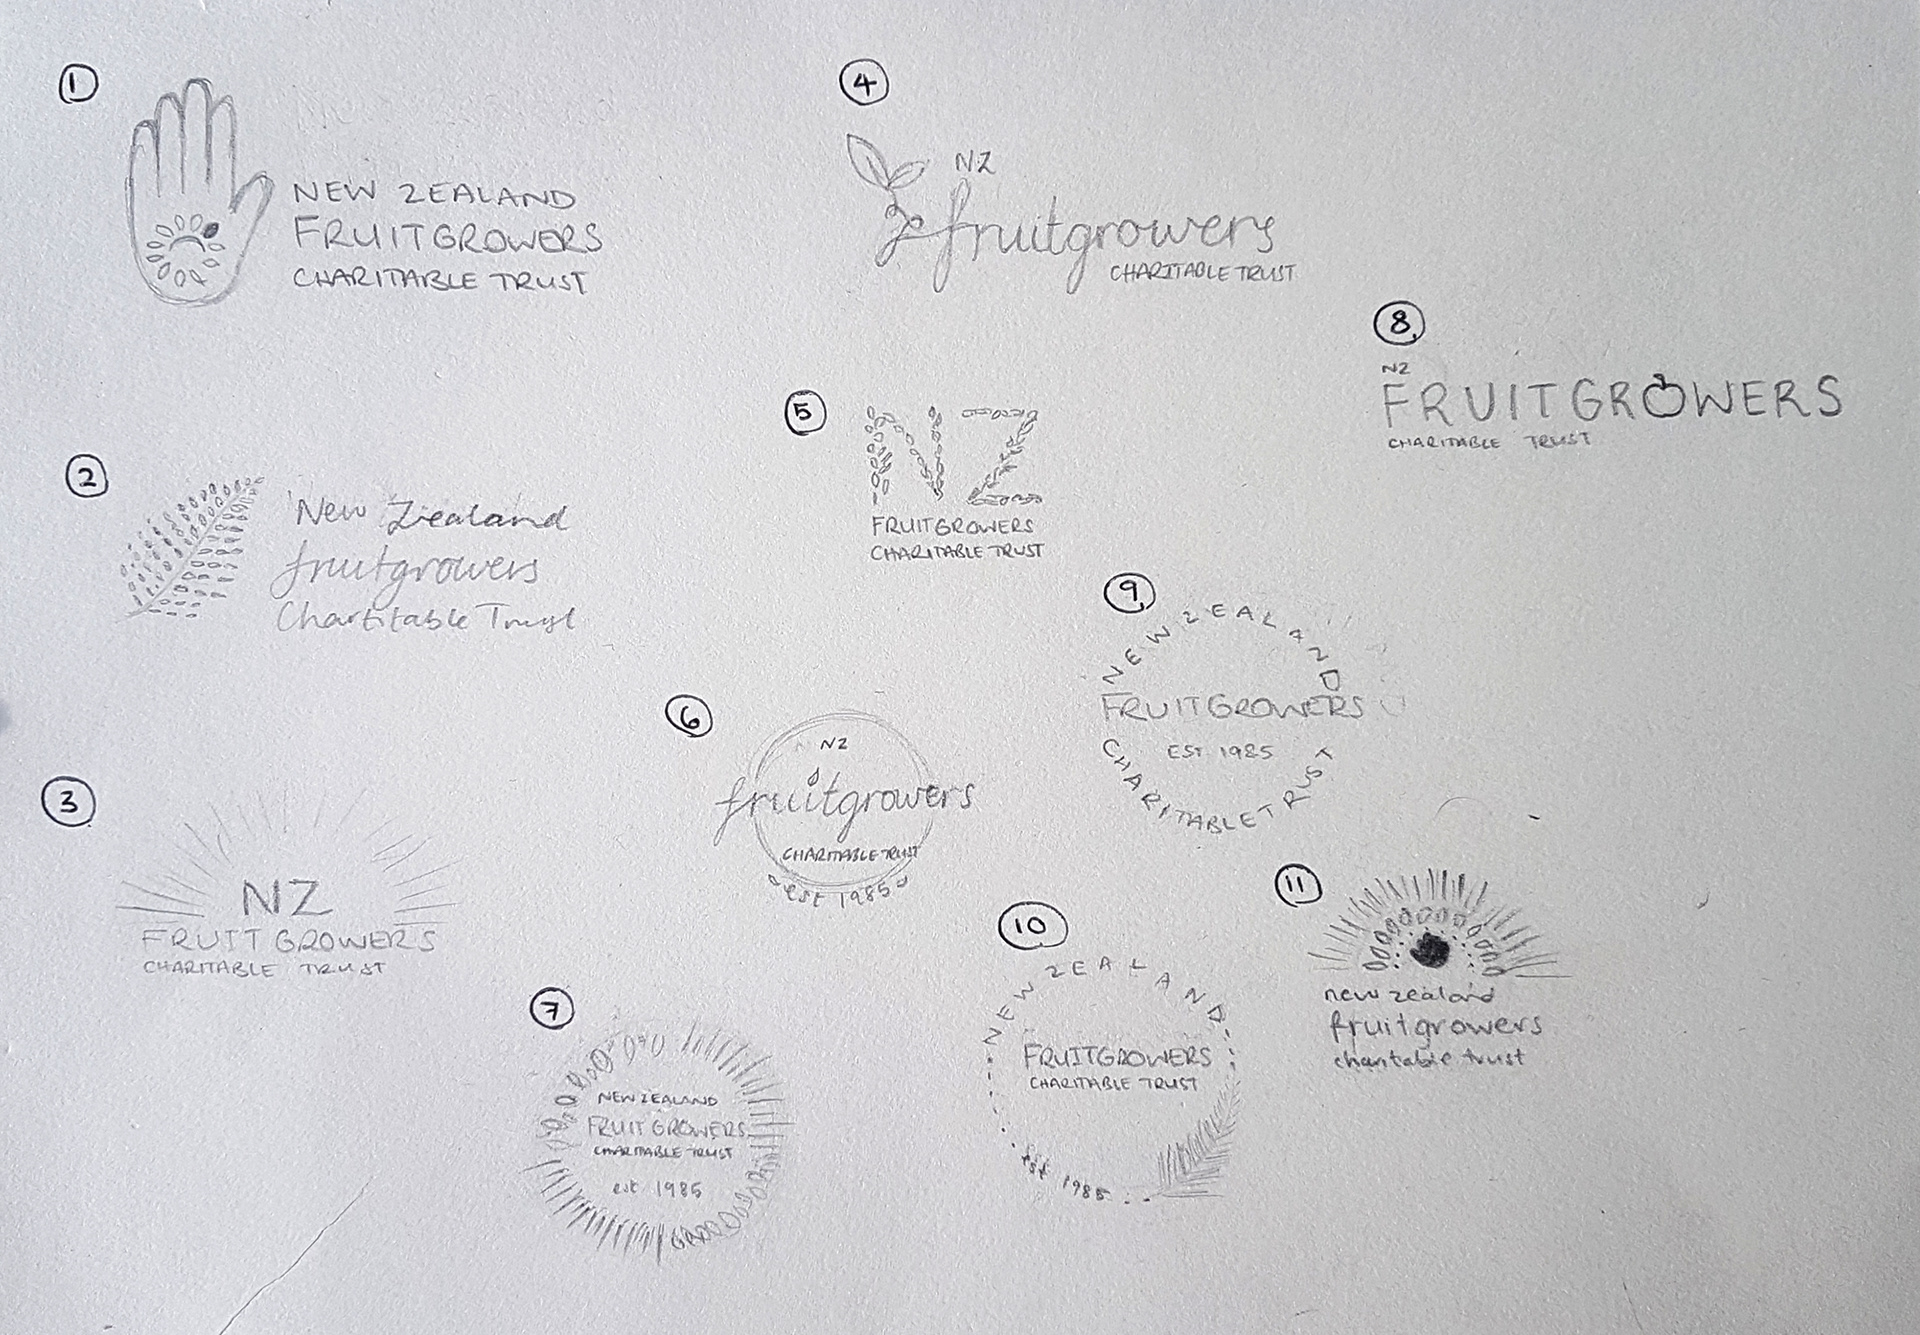 1
NEW ZEALAND
FRUITGROWERS
CHARITABLE TRUST
2
New Zealand
fruitgrowers
Chartitable Trust
3
NZ
FRUIT GROWERS
CHARITABLE TRUST
4
NZ
fruitgrowers
CHARITABLE TRUST
5
NZ
FRUITGROWERS
CHARITABLE TRUST
6
NZ
fruitgrowers
CHARITABLE TRUST
est 1985
7
NEW ZEALAND
FRUIT GROWERS
CHARITABLE TRUST
est 1985
8
NZ
FRUITGROWERS
CHARITABLE TRUST
9
NEW ZEALAND
FRUITGROWERS
EST 1985
CHARITABLE TRUST
10
NEW ZEALAND
FRUITGROWERS
CHARITABLE TRUST
est 1985
11
new zealand
fruitgrowers
charitable trust